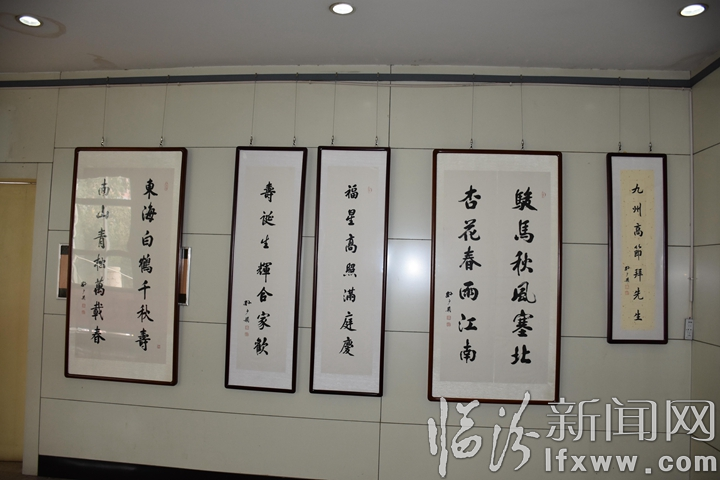 東海白鶴千秋壽
南山青松萬載春
福星高照滿庭慶
壽誕生輝合家歡
駿馬秋風塞北
杏花春雨江南
九州高節拜先生
临汾新闻网
lfxww.com